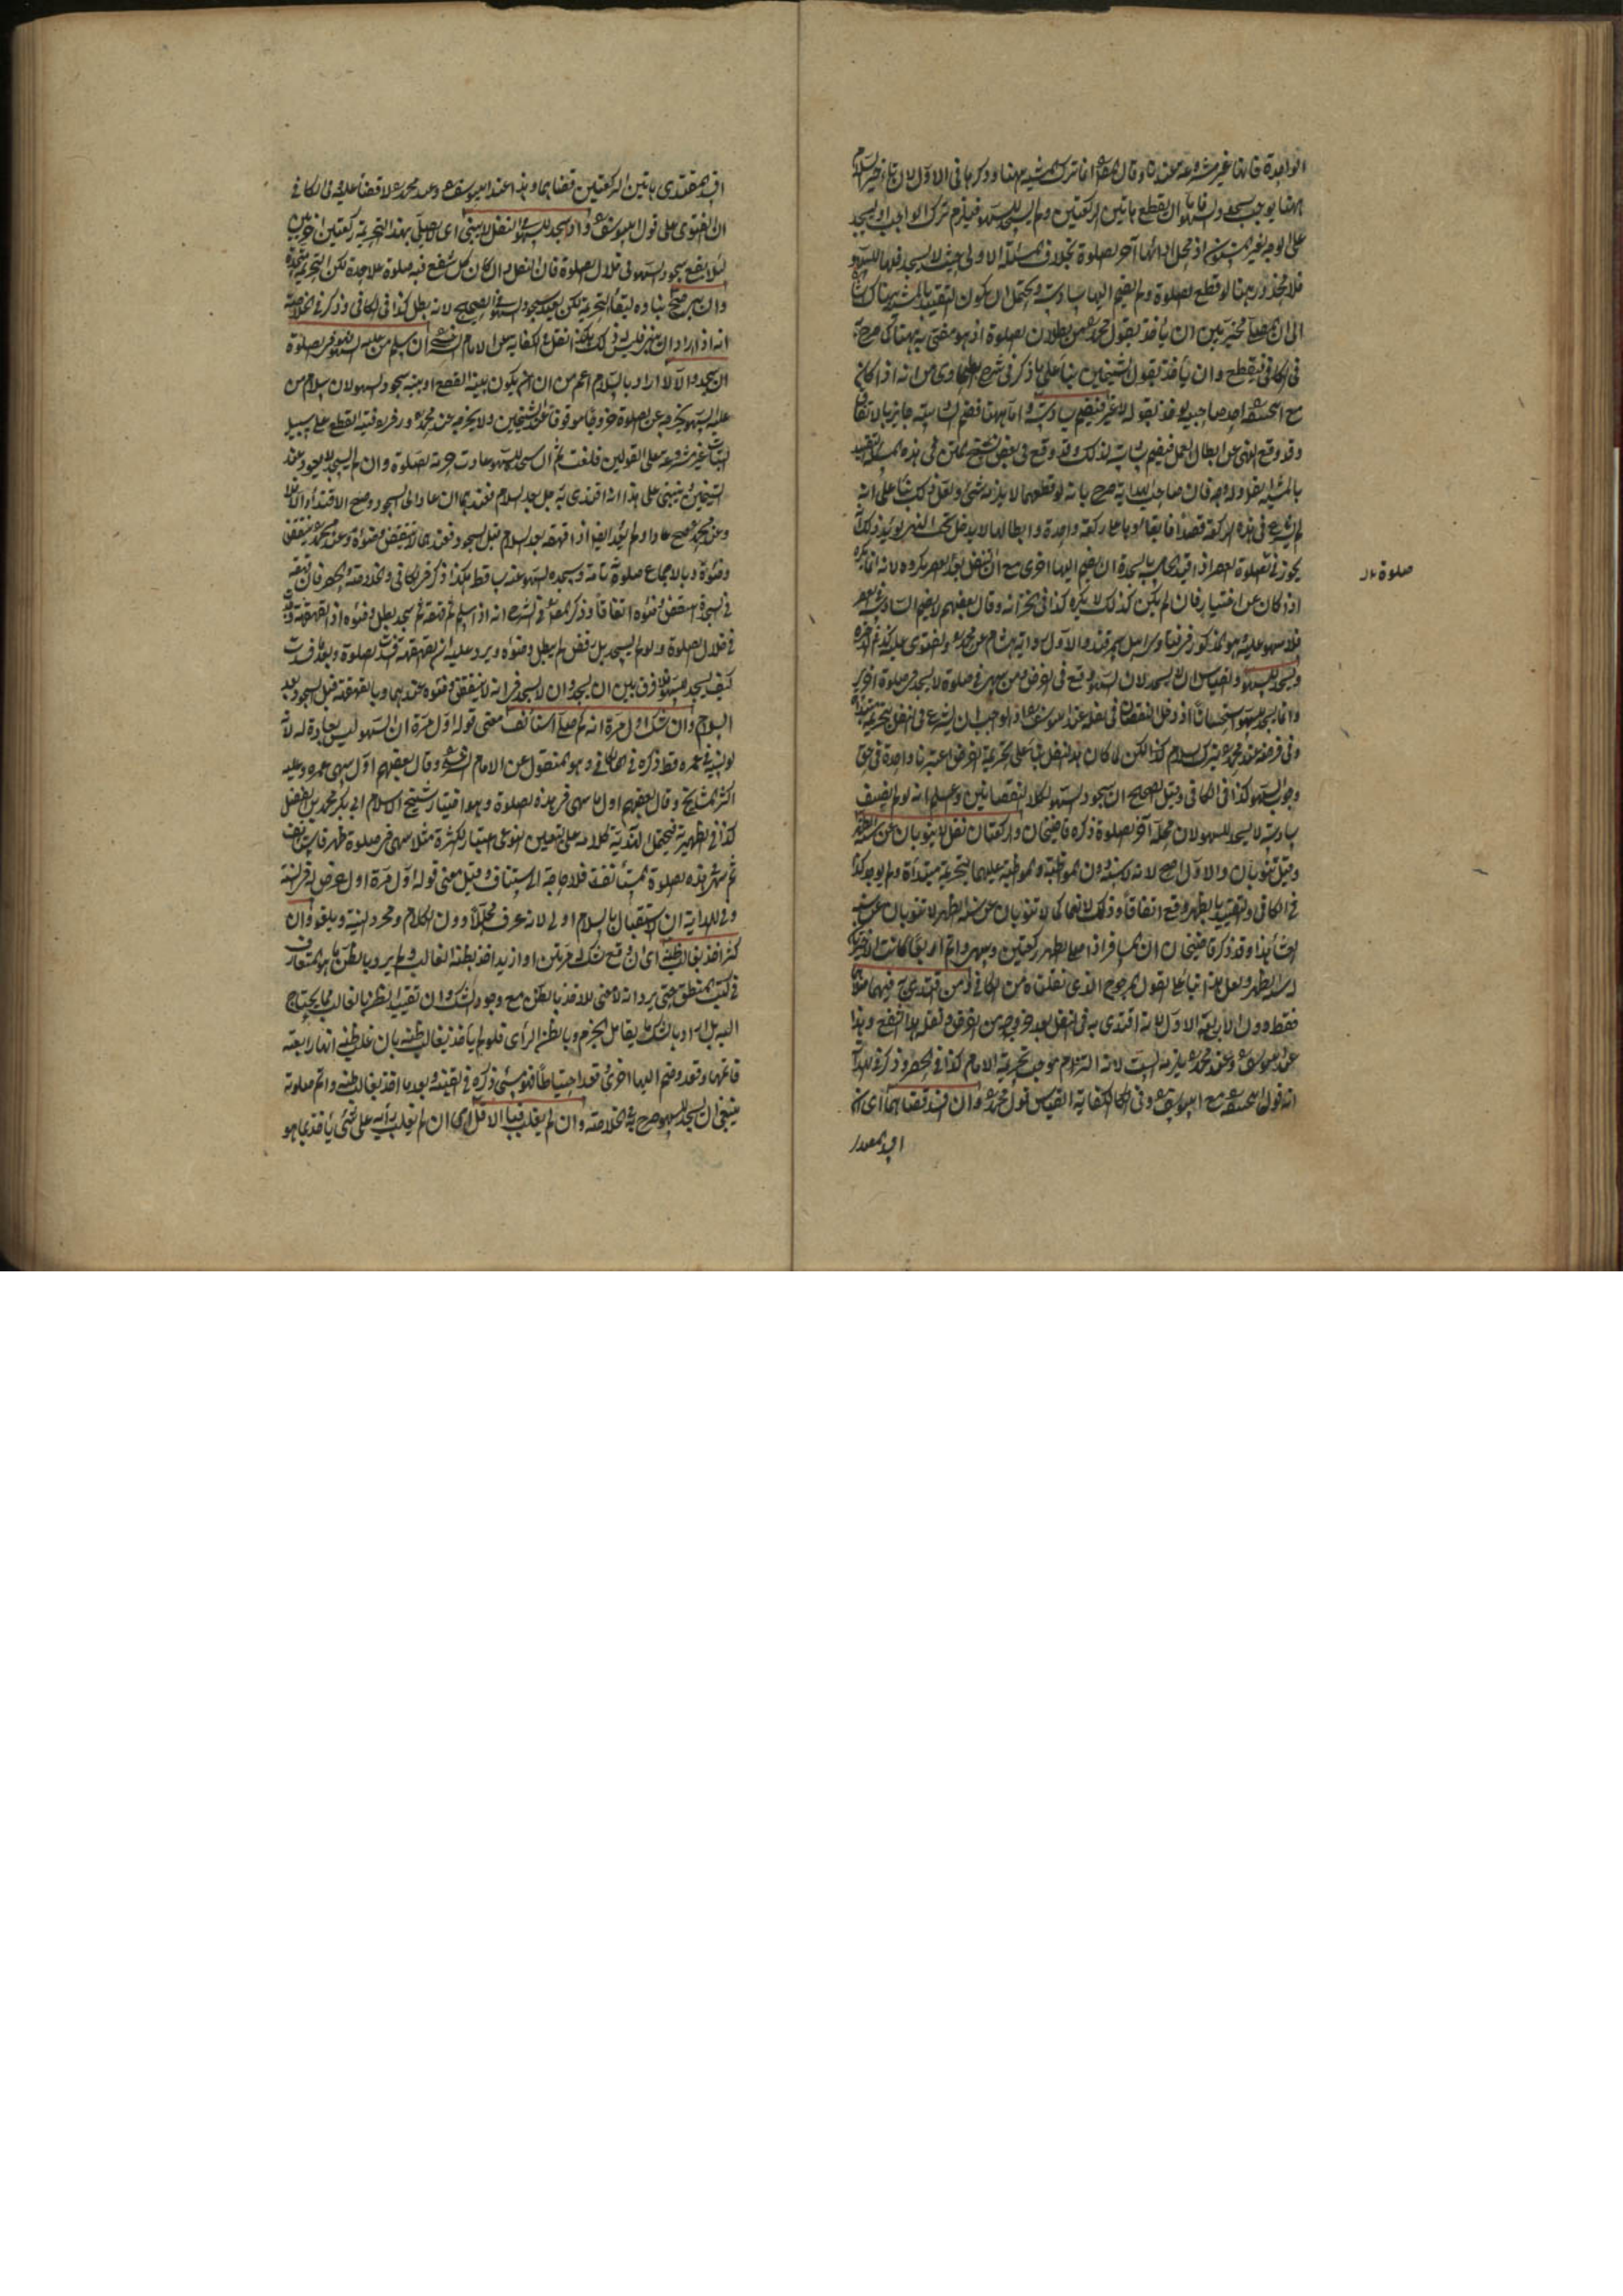 الواحدة فانها غير مشروعة عندنا وقال انما ترك المشية ههنا وذكرها في الاول لان تاخير السلام
ههنا يوجب سجدة السهو ان يقطع هاتين الركعتين ولم يسجد للسهو فيلزم ترك الواجب او يسجد
على الوجه الغير المسنون اذ محل ادائها آخر الصلوة بخلاف المسئلة الاولى حيث لا يسجد فيها للسهو
فلا محذور هنا لو قطع الصلوة ولم يضم اليها سادسة ويحتمل ان يكون التقييد بالمشية هناك
الى ان المصلي مخير بين ان ياخذ بقول محمد من بطلان الصلوة اذ هو مفتى به
في الكافي فيقطع وان ياخذ بقول الشيخين بناء على ما ذكر في شرح الطحاوي من انه اذا كان
مع احد صاحبيه يوخذ بقوله لا غير فيضم سادسة واما ههنا فضم السادسة جائز بالاتفاق
وقد وقع النهي عن ابطال العمل فيضم سادسة لذلك وقد وقع في بعض نسخ المتن في هذه المسئلة التقييد
بالمشية ايضا وله وجه فان صاحب الهداية صرح بانه لو قطعهما لا يلزمه شيء ولعل ذلك بناء على انه
لم يشرع في هذه الركعة قصدا
يجوز في الصلوة العصر اذا قيد الخامسة بالسجدة ان يضم اليها اخرى مع ان النفل بعد العصر مكروه لانه انما يكره
اذا كان عن اختيار فان لم يكن كذلك لا يكره كذا في الخزانة وقال بعضهم لا يضم السادسة في العصر
صلوة
فلا سهو عليه
ويسجد للسهو والقياس ان لا يسجد لان السهو وقع في الفرض ومن سهى في صلوة لا يسجد في صلوة اخرى
وانما يسجد للسهو استحسانا اذ دخل النقصان في نفله عند ابي يوسف اذ الواجب ان يشرع في النفل بتحريمة مبتدأة
وفي فرضه عند محمد بترك السلام كذا لكن لما كان هذا النفل بناء على تحريمة الفرض اعتبرنا واحدة في حق
وجوب السهو كذا في الكافي وقيل الصحيح ان سجود السهو لكلا النقصانين وعلم انه لو لم يضف
سادسة لا يسجد للسهو لان محله آخر الصلوة ذكره قاضيخان والركعتان نفل لا ينوبان عن سنة الظهر
وقيل تنوبان والاول اصح لانه السنة بالمواظبة والمواظبة عليهما بتحريمة مبتدأة ولم يوجد كذا
في الكافي والتقييد بالظهر وقع اتفاقا وذلك لانهما كما لا تنوبان عن سنة الظهر لا تنوبان عن سنة
العشاء هذا وقد ذكر قاضيخان ان المسافر اذا صلى الظهر ركعتين وسهى واتم اربعا كانت الاخريان
سنة الظهر ولعل هذا بناء على القول المرجوح الذي نقلناه من الكافي ومن اقتدى به فيهما صلاهما
فقط دون الاربعة الاول لانه اقتدى به في النفل بعد خروجه من الفرض ونفله هذا الشفع وهذا
عند ابي يوسف وعند محمد يلزمه الست لانه التزم موجب تحريمة الامام كذا في الحصر وذكر في الهداية
انه قول ابي حنيفة مع ابي يوسف وفي الكفاية القياس قول محمد وان افسد قضاهما اي ان
افسد المقتدي
افسد المقتدي هاتين الركعتين قضاهما وهذا عند ابي يوسف وعند محمد لا قضاء عليه وفي الكافي
ان الفتوى على قول ابي يوسف واذا سجد للسهو في النفل لا يبني اي لا يصلي بهذه التحريمة ركعتين اخريين
لئلا يقع سجود السهو في خلال الصلوة فان النفل وان كان كل شفع منه صلوة على حدة لكن التحريمة متحدة
وان بنى صح بناؤه لبقاء التحريمة لكن يعيد سجود السهو في الصحيح لانه بطل كذا في الكافي وذكر في الخلاصة
انه اذا اراد ان يبني فليس له ذلك هكذا نقل في الكفاية عن الامام السرخسي ان سلم من عليه السهو فهو في الصلوة
ان سجد والا لا اراد بالسلام اعم من ان يكون بنية القطع او بنية سجود السهو لان سلام من
عليه السهو يخرجه عن الصلوة خروجا موقوفا عند الشيخين ولا يخرجه عند محمد وزفر ونية القطع على سبيل
البتات غير مشروعة على القولين فلغت ثم ان سجد للسهو عادت حرمة الصلوة وان لم يسجد لا يعود عند
الشيخين فينبني على هذا انه اقتدى به رجل بعد السلام فعندهما ان عاد الى السجود صح الاقتداء والا فلا
وعند محمد صح عاد او لم يعد ايضا اذا قهقه بعد السلام قبل السجود فعندهما لا ينتقض وضوئه وعند محمد ينتقض
وضوئه وبالاجماع صلوته تامة وسجدة السهو عنه ساقط هكذا ذكر في الكافي والخلاصة والحصر فان قهقه
في السجدة انتقض وضوئه اتفاقا وذكر المص في الشرح انه اذا سلم ثم قهقه ثم سجد بطل وضوئه اذ القهقهة وقعت
في خلال الصلوة ولو لم يسجد بل رفض لم يبطل وضوئه ويرد عليه ان بالقهقهة فسدت الصلوة وبعد ما فسدت
كيف يسجد للسهو فلا فرق بين ان يسجد وان لا يسجد في انه لا ينتقض وضوئه عندهما وبالقهقهة قبل السجود بعد
السلام وان شك اول مرة انه كم صلى استأنف معنى قوله اول مرة ان السهو ليس بعادة له لا انه
لم يسه في عمره قط ذكره في الكافي وهو المنقول عن الامام السرخسي وقال بعضهم اول سهى عمره وعليه
اكثر المشايخ وقال بعضهم اول ما سهى في هذه الصلوة وهو اختيار شيخ الاسلام ابي بكر محمد بن الفضل
كذا في الظهيرية
ثم سهى في هذه الصلوة المستأنفة فلا حاجة الى استيناف وقيل معنى قوله اول مرة اول عرض له في السنة
وفي الهداية ان الاستقبال بالسلام اولى لانه عرف محللا دون الكلام ومجرد النية ويلغو وان
كثر اخذ بغالب ظنه اي ان وقع شك له مرتين او ازيد اخذ بظنه الغالب ولم يرد بالظن ما هو المتعارف
في كتب المنطق حتى يرد انه لا معنى للاخذ بالظن مع وجود الشك وان تقييد الظن بالغالب مما لا يحتاج
اليه بل اراد بالشك ما يقابل الجزم وبالظن الرأي فلو لم ياخذ بغالب ظنه بان غلب ظنه انها رابعة
فاتمها وقعد وضم اليها اخرى وقعد احتياطا فهو مسيئ ذكره في القنية وبعد ما اخذ بغالب ظنه واتم صلوته
ينبغي ان يسجد للسهو صرح به في الخلاصة وان لم يغلب فبالاقل اي ان لم يغلب رأيه على شيء ياخذ بما هو